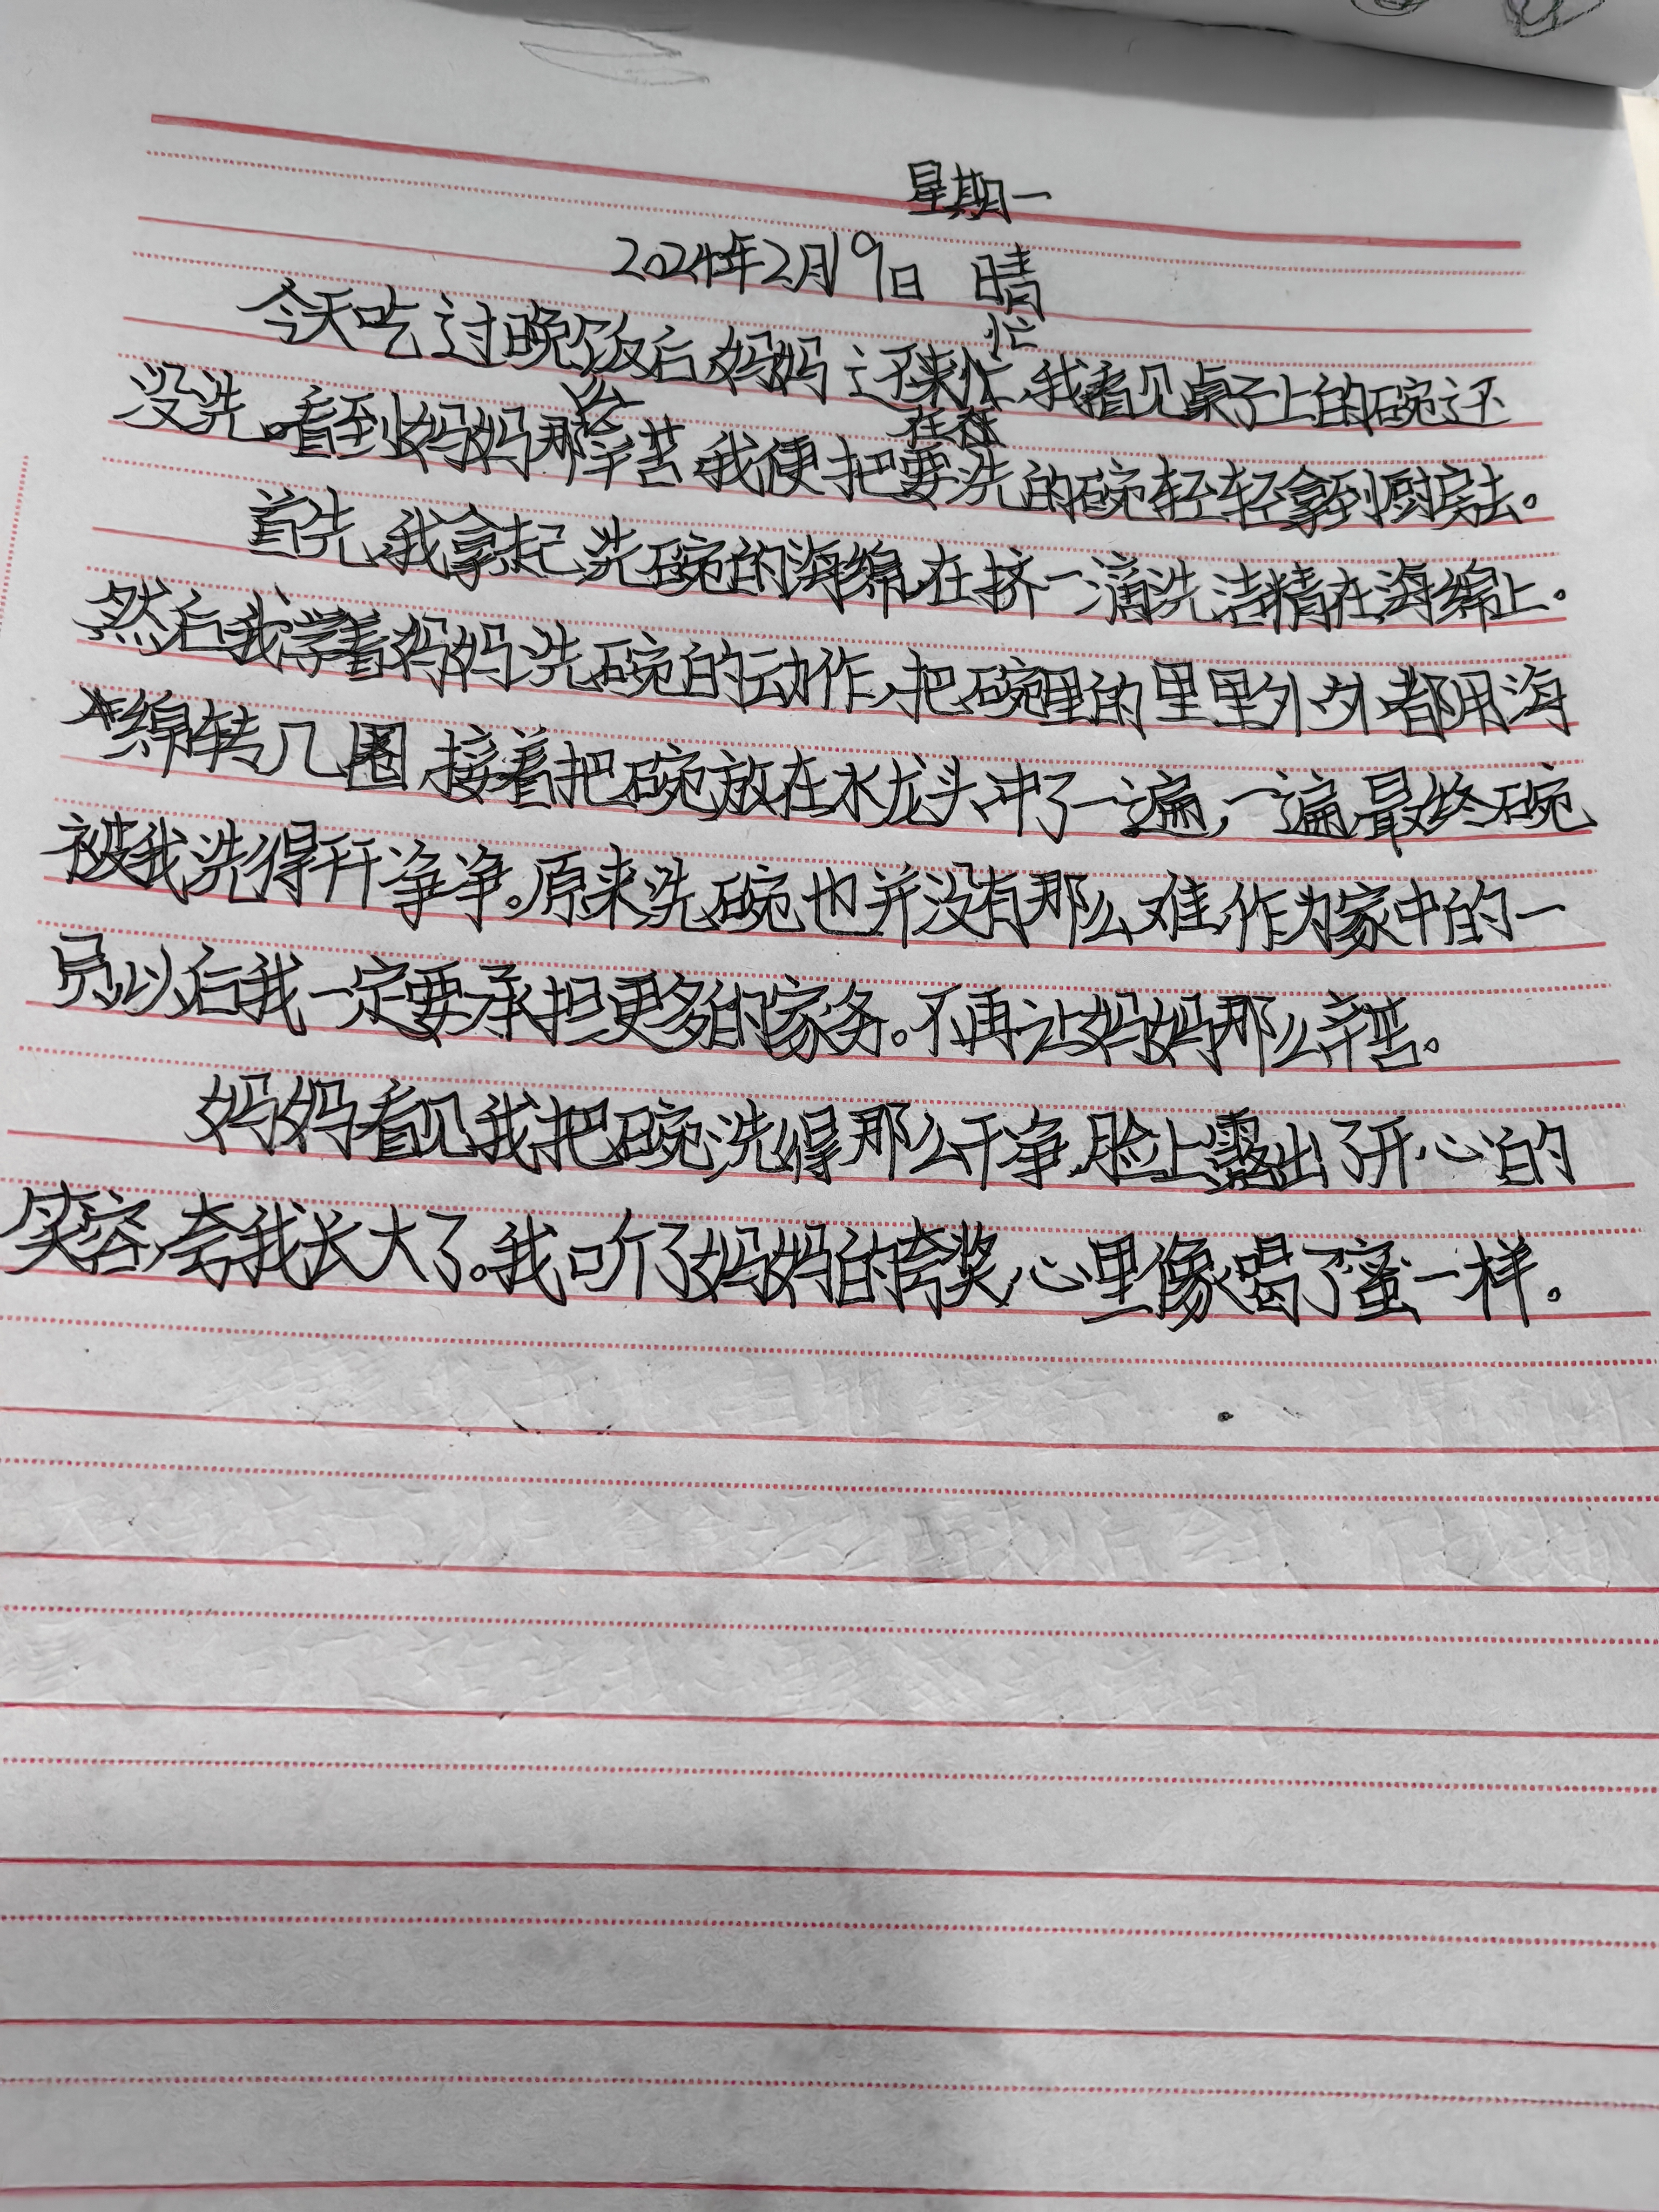 星期一
2024年2月19日 晴
今天吃过晚饭后,妈妈还来忙忙,我看见桌子上的碗还
没洗。看到妈妈那么辛苦,我便把要洗的碗轻轻拿到厨房去。
首先,我拿起洗碗的海绵,在挤一滴洗洁精在海绵上。
然后我学着妈妈洗碗的动作,把碗里的里里外外都用海
绵转几圈,接着把碗放在水龙头冲了一遍,一遍,最终碗
被我洗得干干净净。原来洗碗也并没有那么难,作为家中的一
员以后我一定要承担更多的家务。不再让妈妈那么辛苦。
妈妈看见我把碗洗得那么干净,脸上露出了开心的
笑容,夸我长大了。我听了妈妈的夸奖,心里像喝了蜜一样。